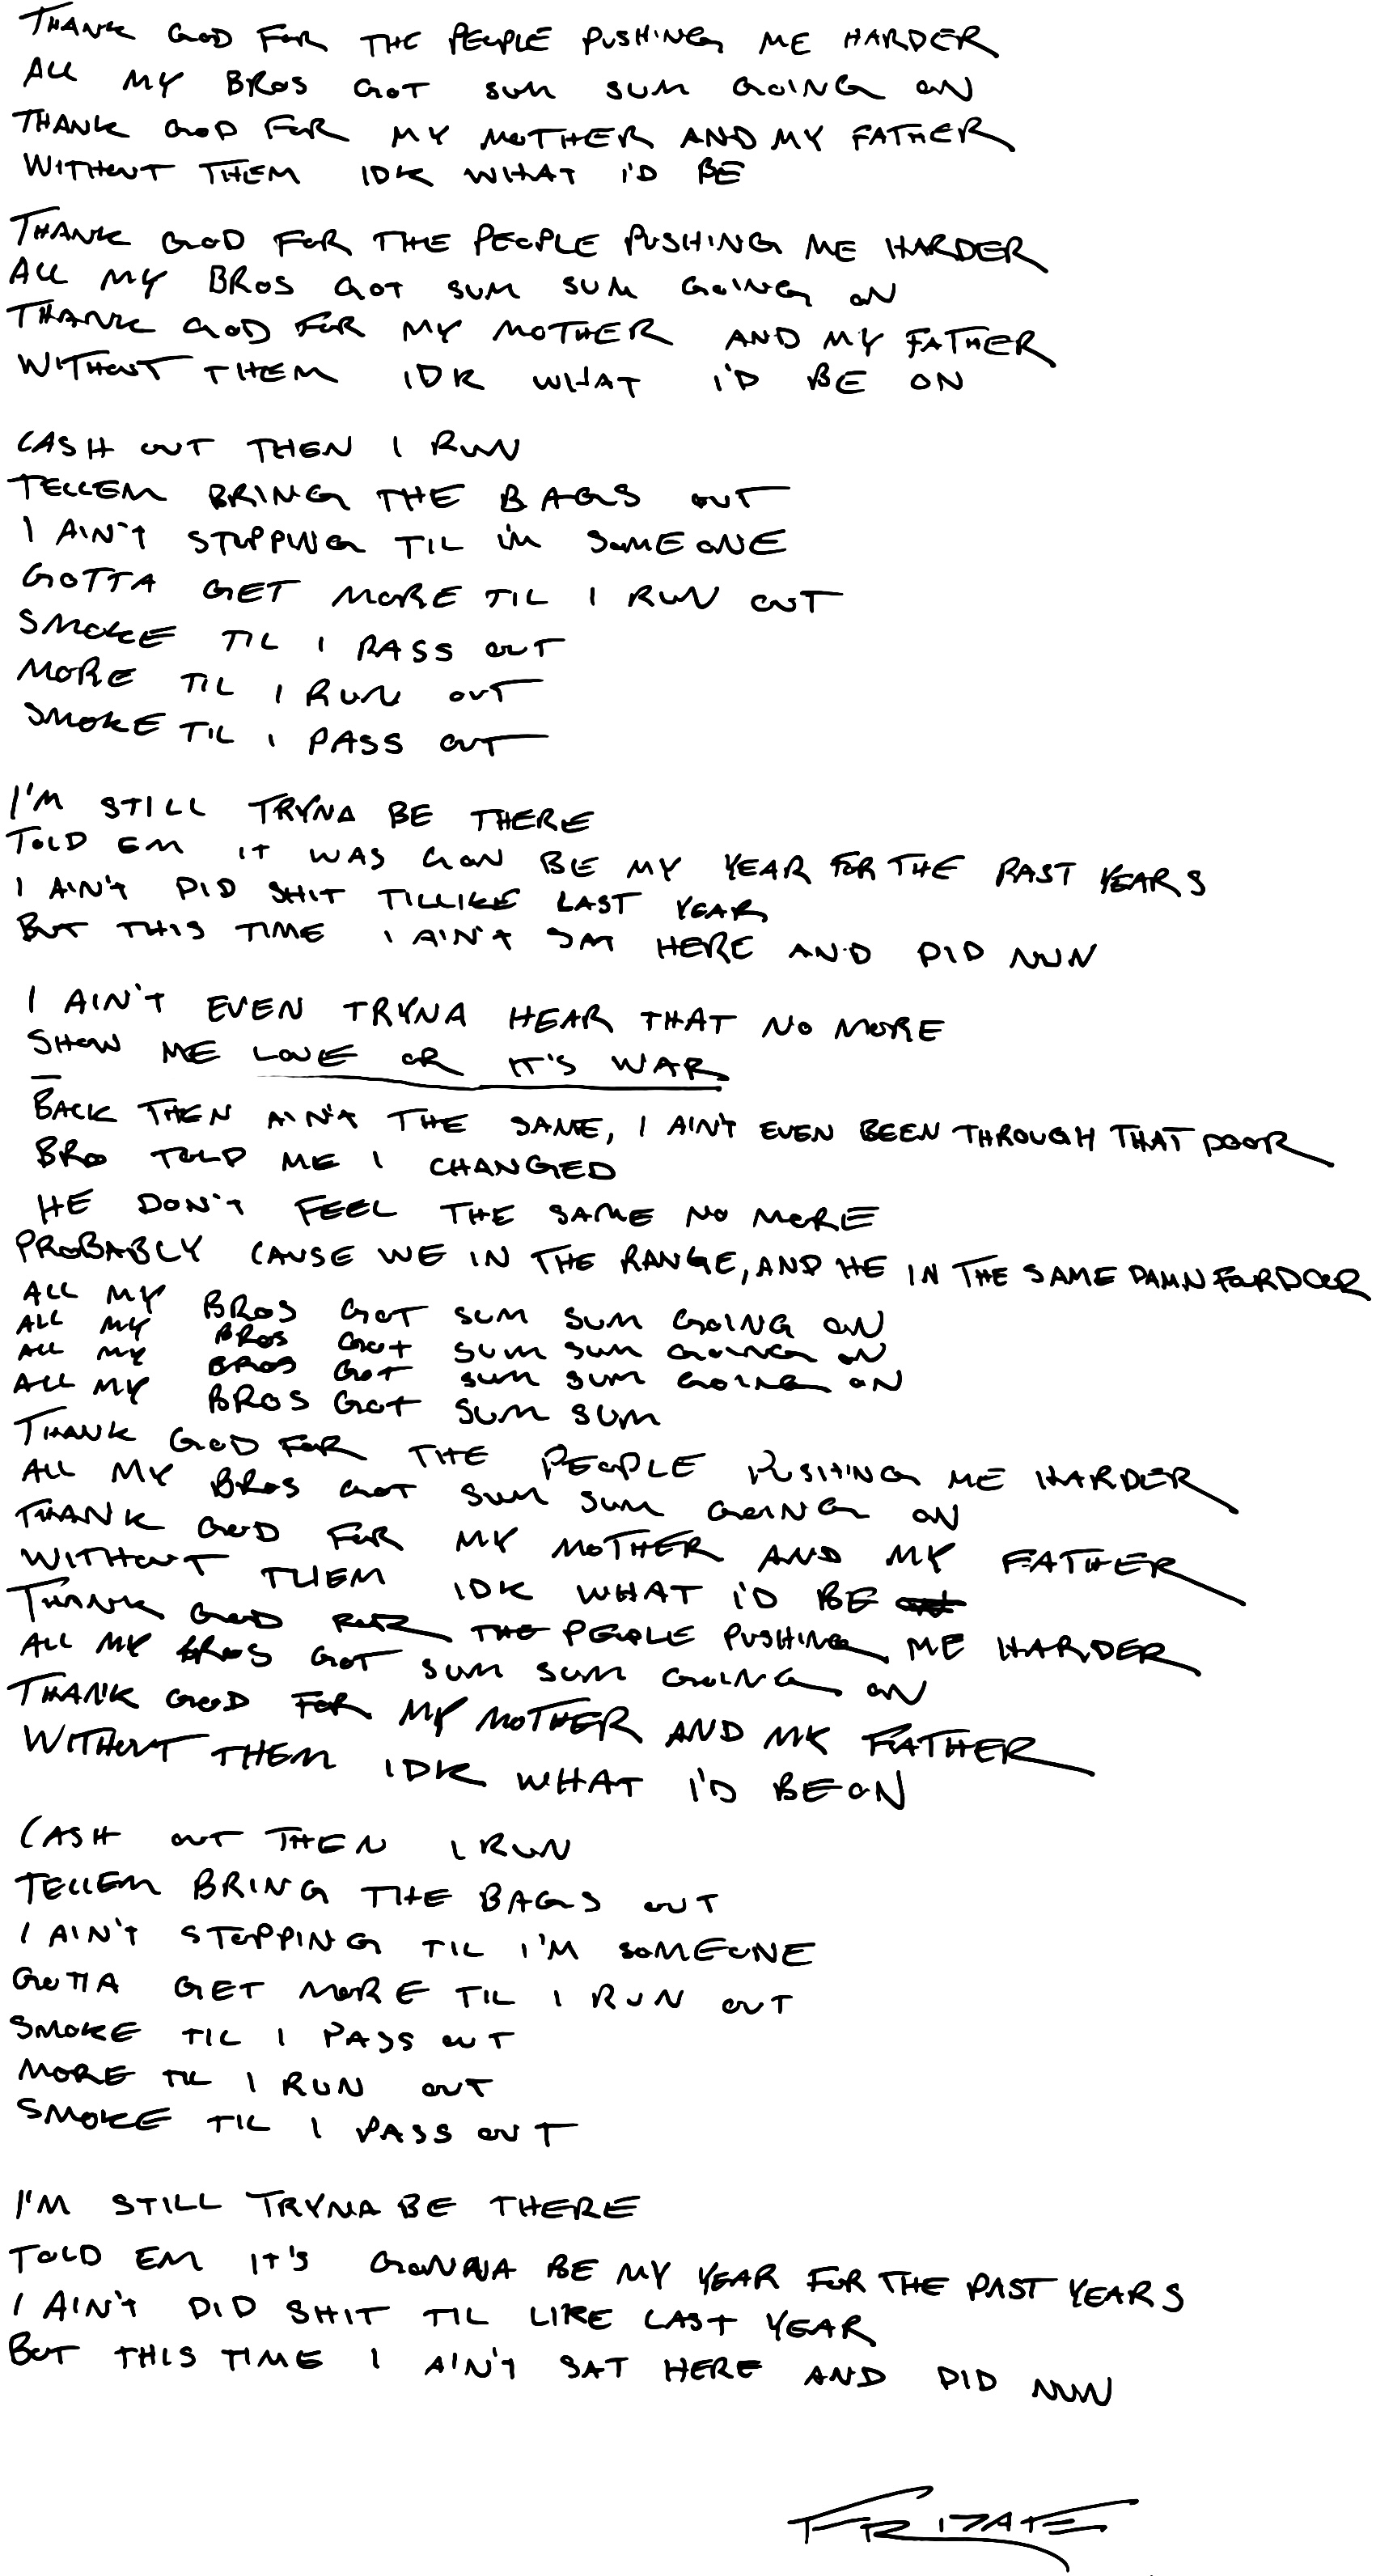 THANK GOD FOR THE PEOPLE PUSHING ME HARDER
ALL MY BROS GOT SUM SUM GOING ON
THANK GOD FOR MY MOTHER AND MY FATHER
WITHOUT THEM IDK WHAT I'D BE
THANK GOD FOR THE PEOPLE PUSHING ME HARDER
ALL MY BROS GOT SUM SUM GOING ON
THANK GOD FOR MY MOTHER AND MY FATHER
WITHOUT THEM IDK WHAT I'D BE ON
CASH OUT THEN I RUN
TELLEM BRING THE BAGS OUT
I AIN'T STOPPING TIL I'M SOMEONE
GOTTA GET MORE TIL I RUN OUT
SMOKE TIL I PASS OUT
MORE TIL I RUN OUT
SMOKE TIL I PASS OUT
I'M STILL TRYNA BE THERE
TOLD EM IT WAS GON BE MY YEAR FOR THE PAST YEARS
I AIN'T DID SHIT TILLIKE LAST YEAR
BUT THIS TIME I AIN'T SAT HERE AND DID NUN
I AIN'T EVEN TRYNA HEAR THAT NO MORE
SHOW ME LOVE OR IT'S WAR
BACK THEN AIN'T THE SAME, I AIN'T EVEN BEEN THROUGH THAT DOOR
BRO TOLD ME I CHANGED
HE DON'T FEEL THE SAME NO MORE
PROBABLY CAUSE WE IN THE RANGE, AND HE IN THE SAME DAMN FOR DOOR
ALL MY BROS GOT SUM SUM GOING ON
ALL MY BROS GOT SUM SUM GOING ON
ALL MY BROS GOT SUM SUM GOING ON
ALL MY BROS GOT SUM SUM
THANK GOD FOR THE PEOPLE PUSHING ME HARDER
ALL MY BROS GOT SUM SUM GOING ON
THANK GOD FOR MY MOTHER AND MY FATHER
WITHOUT THEM IDK WHAT I'D BE
THANK GOD FOR THE PEOPLE PUSHING ME HARDER
ALL MY BROS GOT SUM SUM GOING ON
THANK GOD FOR MY MOTHER AND MY FATHER
WITHOUT THEM IDK WHAT I'D BE ON
CASH OUT THEN I RUN
TELLEM BRING THE BAGS OUT
I AIN'T STOPPING TIL I'M SOMEONE
GOTTA GET MORE TIL I RUN OUT
SMOKE TIL I PASS OUT
MORE TIL I RUN OUT
SMOKE TIL I PASS OUT
I'M STILL TRYNA BE THERE
TOLD EM IT'S GONNA BE MY YEAR FOR THE PAST YEARS
I AIN'T DID SHIT TIL LIKE LAST YEAR
BUT THIS TIME I AIN'T SAT HERE AND DID NUN